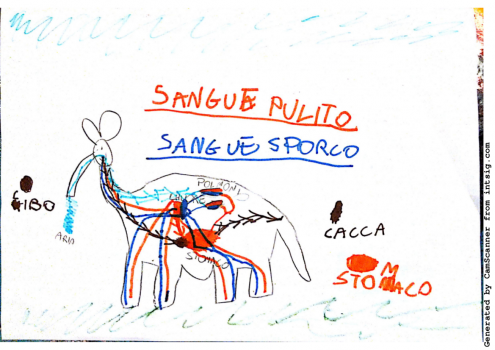 SANGUE PULITO
SANGUE SPORCO
POLMONI
CUORE
CIBO
ARIA
STOMACO
CACCA
STOMMACO
Generated by CamScanner from intsig.com